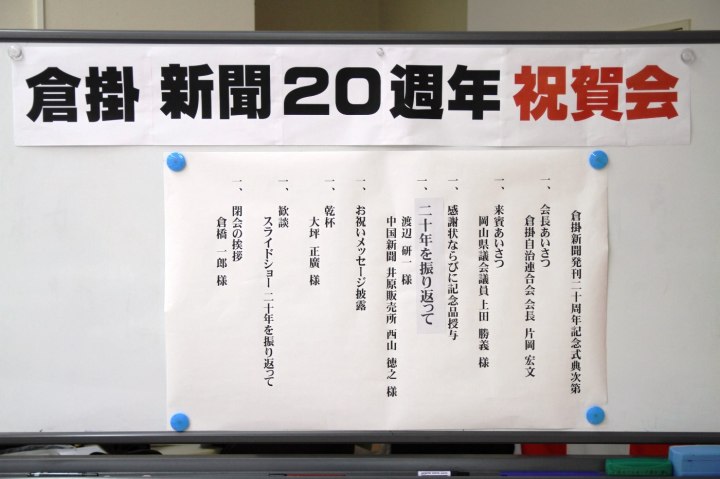 倉掛 新聞20週年 祝賀会
倉掛新聞発刊二十周年記念式典次第
一、会長あいさつ
倉掛自治連合会 会長 片岡 宏文
一、来賓あいさつ
岡山県議会議員 上田 勝義 様
一、感謝状ならびに記念品授与
一、二十年を振り返って
渡辺 研一 様
中国新聞 井原販売所 西山 徳之 様
一、お祝いメッセージ披露
一、乾杯
大坪 正廣 様
一、歓談
スライドショー 二十年を振り返って
一、閉会の挨拶
倉橋 一郎 様